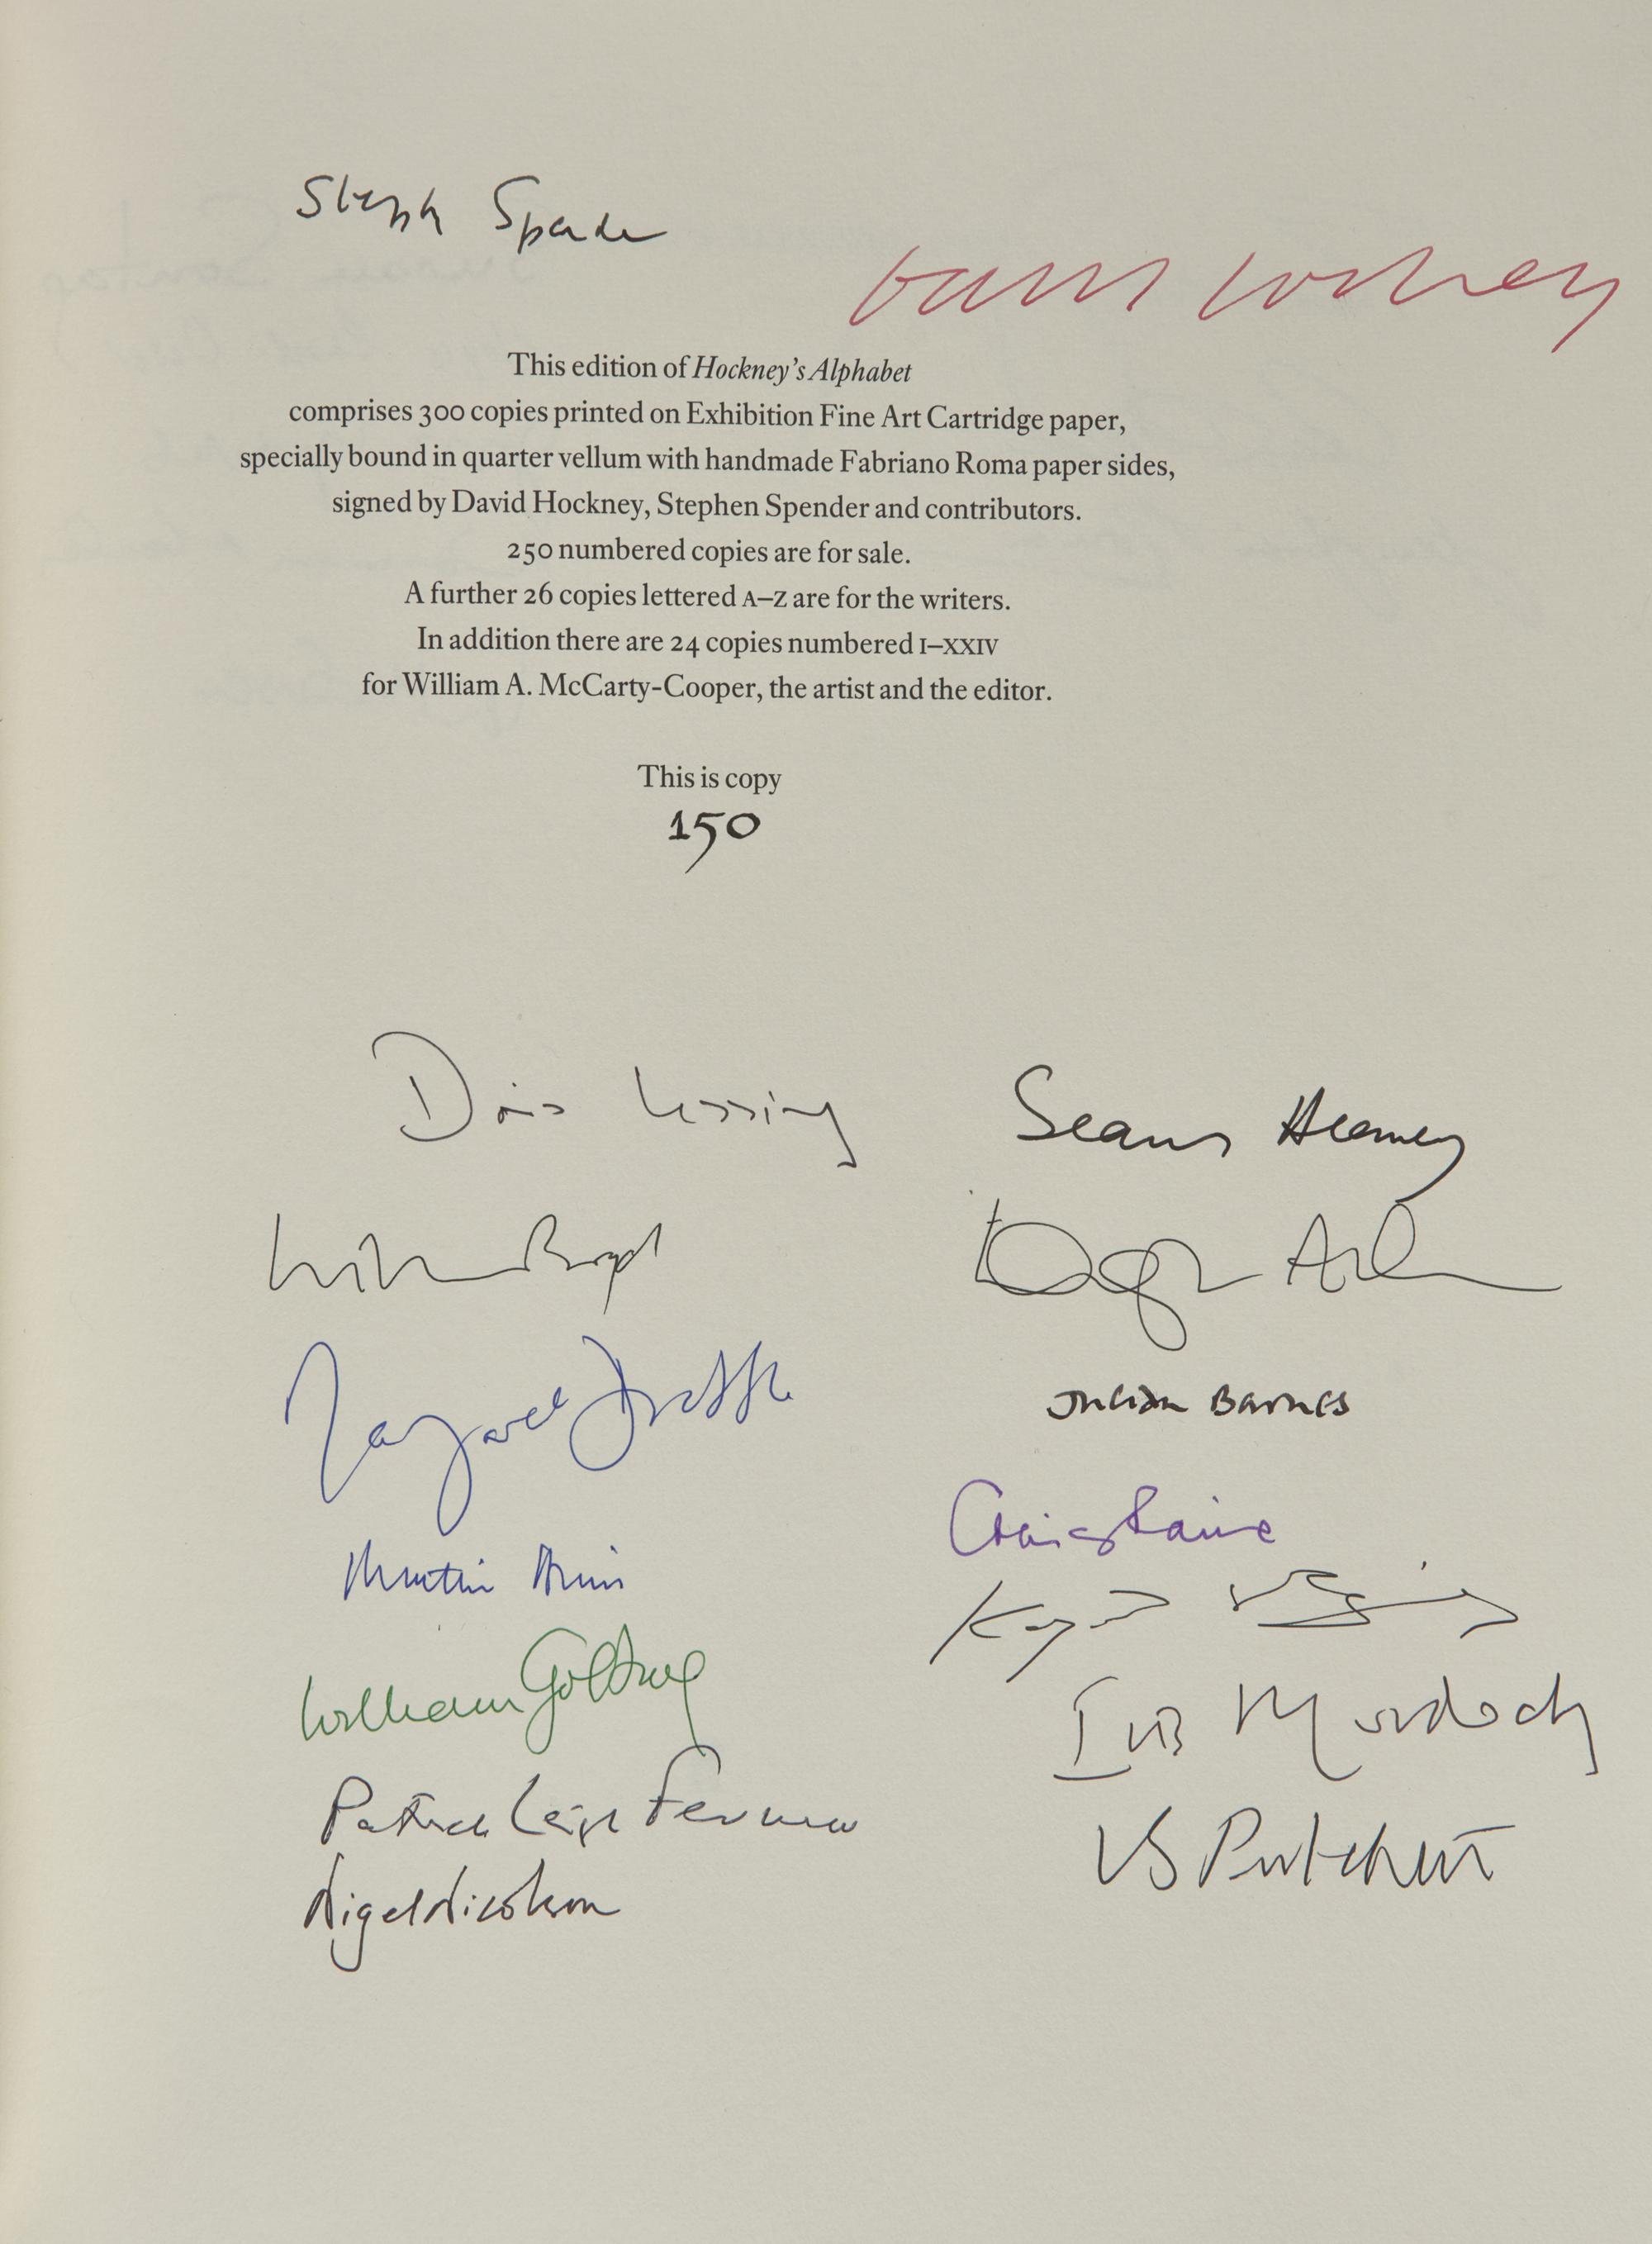 Stephen Spender
David Hockney
This edition of Hockney's Alphabet
comprises 300 copies printed on Exhibition Fine Art Cartridge paper,
specially bound in quarter vellum with handmade Fabriano Roma paper sides,
signed by David Hockney, Stephen Spender and contributors.
250 numbered copies are for sale.
A further 26 copies lettered A–Z are for the writers.
In addition there are 24 copies numbered I–XXIV
for William A. McCarty-Cooper, the artist and the editor.
This is copy
150
Doris Lessing
Seamus Heaney
William Boyd
Douglas Adams
Margaret Drabble
Julian Barnes
Craig Raine
Martin Amis
Kazuo Ishiguro
William Golding
Iris Murdoch
Patrick Leigh Fermor
VS Pritchett
Nigel Nicolson